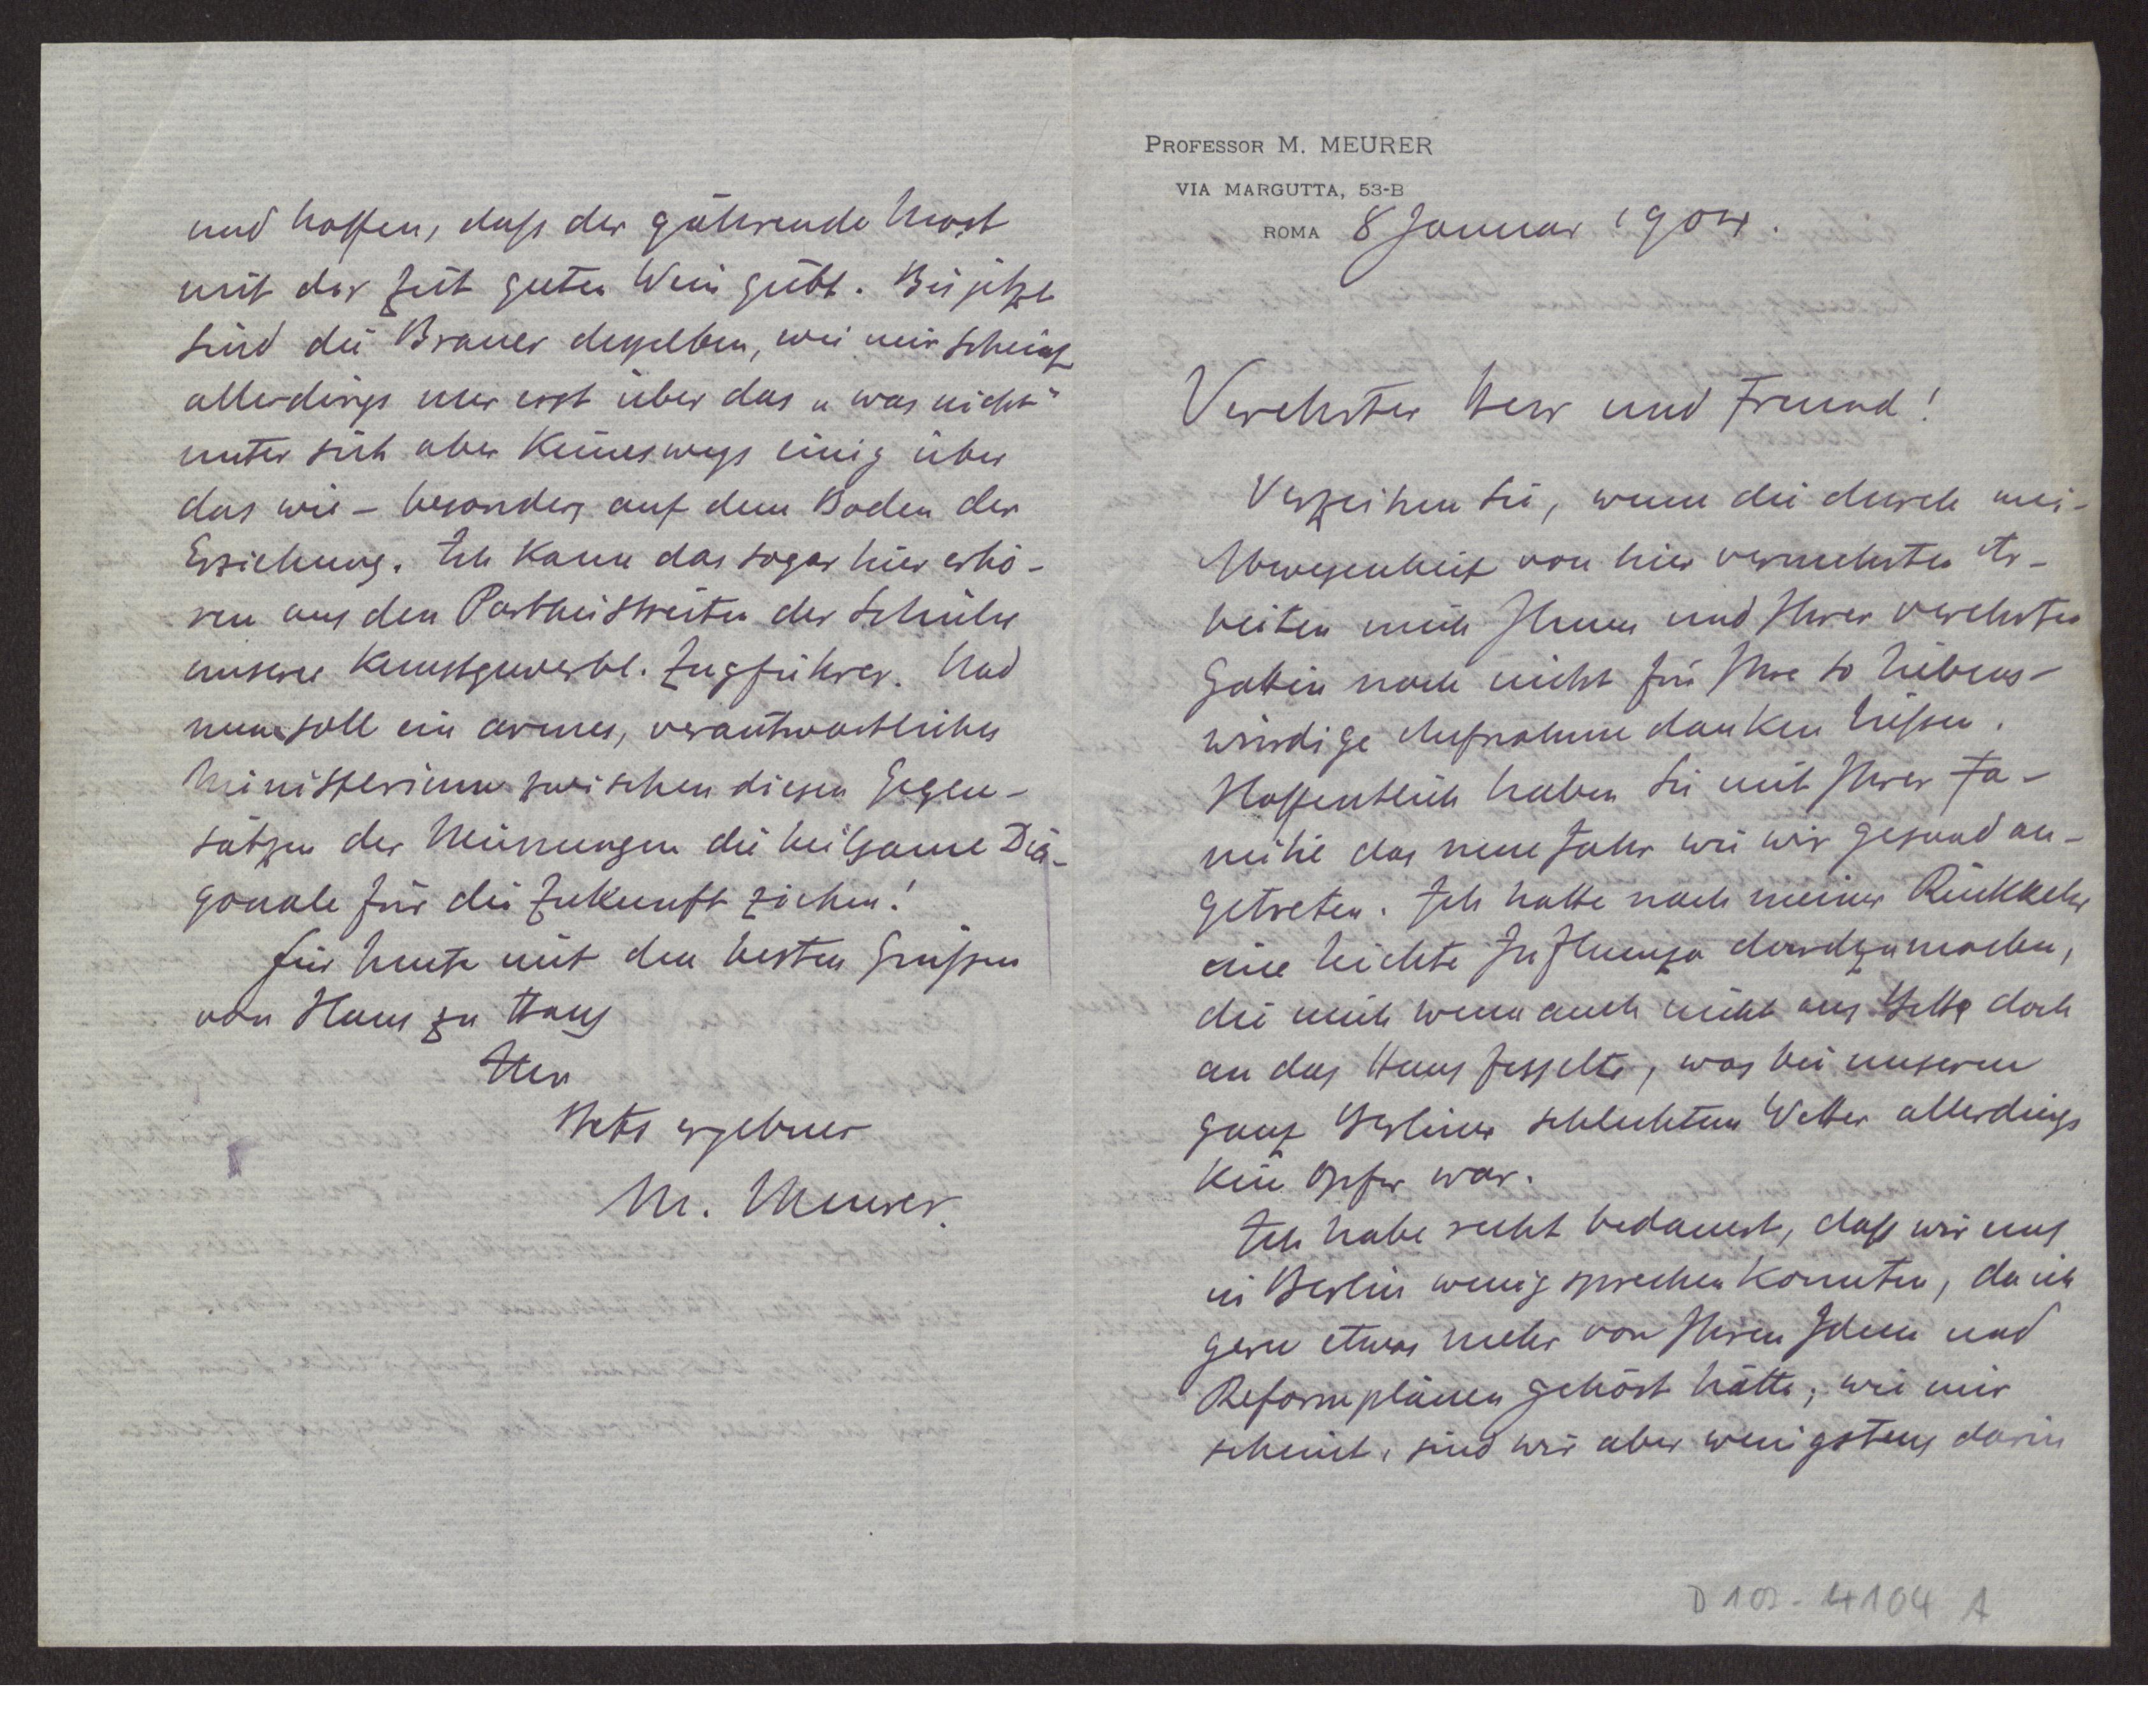 PROFESSOR M. MEURER
VIA MARGUTTA, 53-B
ROMA 8 Januar 1904.
Verehrter Herr und Freund!
Verzeihen Sie, wenn die durch mei-
Abwesenheit von hier vermehrten Ar-
beiten mich Ihnen und Ihrer verehrten
Gattin noch nicht für Ihre so liebens-
würdige Aufnahme danken liessen.
Hoffentlich haben Sie mit Ihrer Fa-
milie das neue Jahr wie wir gesund an-
getreten. Ich hatte nach meiner Rückkehr
eine leichte Influenza durchzumachen,
die mich wenn auch nicht ans Bette doch
an das Haus fesselte, was bei unserem
ganz Berliner schlechtem Wetter allerdings
kein Opfer war.
Ich habe recht bedauert, daß wir uns
in Berlin wenig sprechen konnten, da ich
gern etwas mehr von Ihren Ideen und
Reformplänen gehört hätte; wie mir
scheint, sind wir aber wenigstens darin
und hoffen, daß der gährende Most
mit der Zeit guten Wein giebt. Bis jetzt
sind die Brauer desselben, wie mir scheint
allerdings nur erst über das „was nicht"
unter sich aber keineswegs einig über
das wie - besonders auf dem Boden der
Erziehung. Ich kann das sogar hier erhö-
ren aus den Partheistreiten der Schüler
unserer kunstgewerbl. Zugführer. Und
nun soll ein armes, verantwortliches
Ministerium zwischen diesen Gegen-
sätzen der Meinungen die heilsame Dia-
gonale für die Zukunft ziehen!
Für heute mit den besten Grüssen
von Haus zu Haus
Ihr
Stets ergebner
M. Meurer.
D 102-4104 A